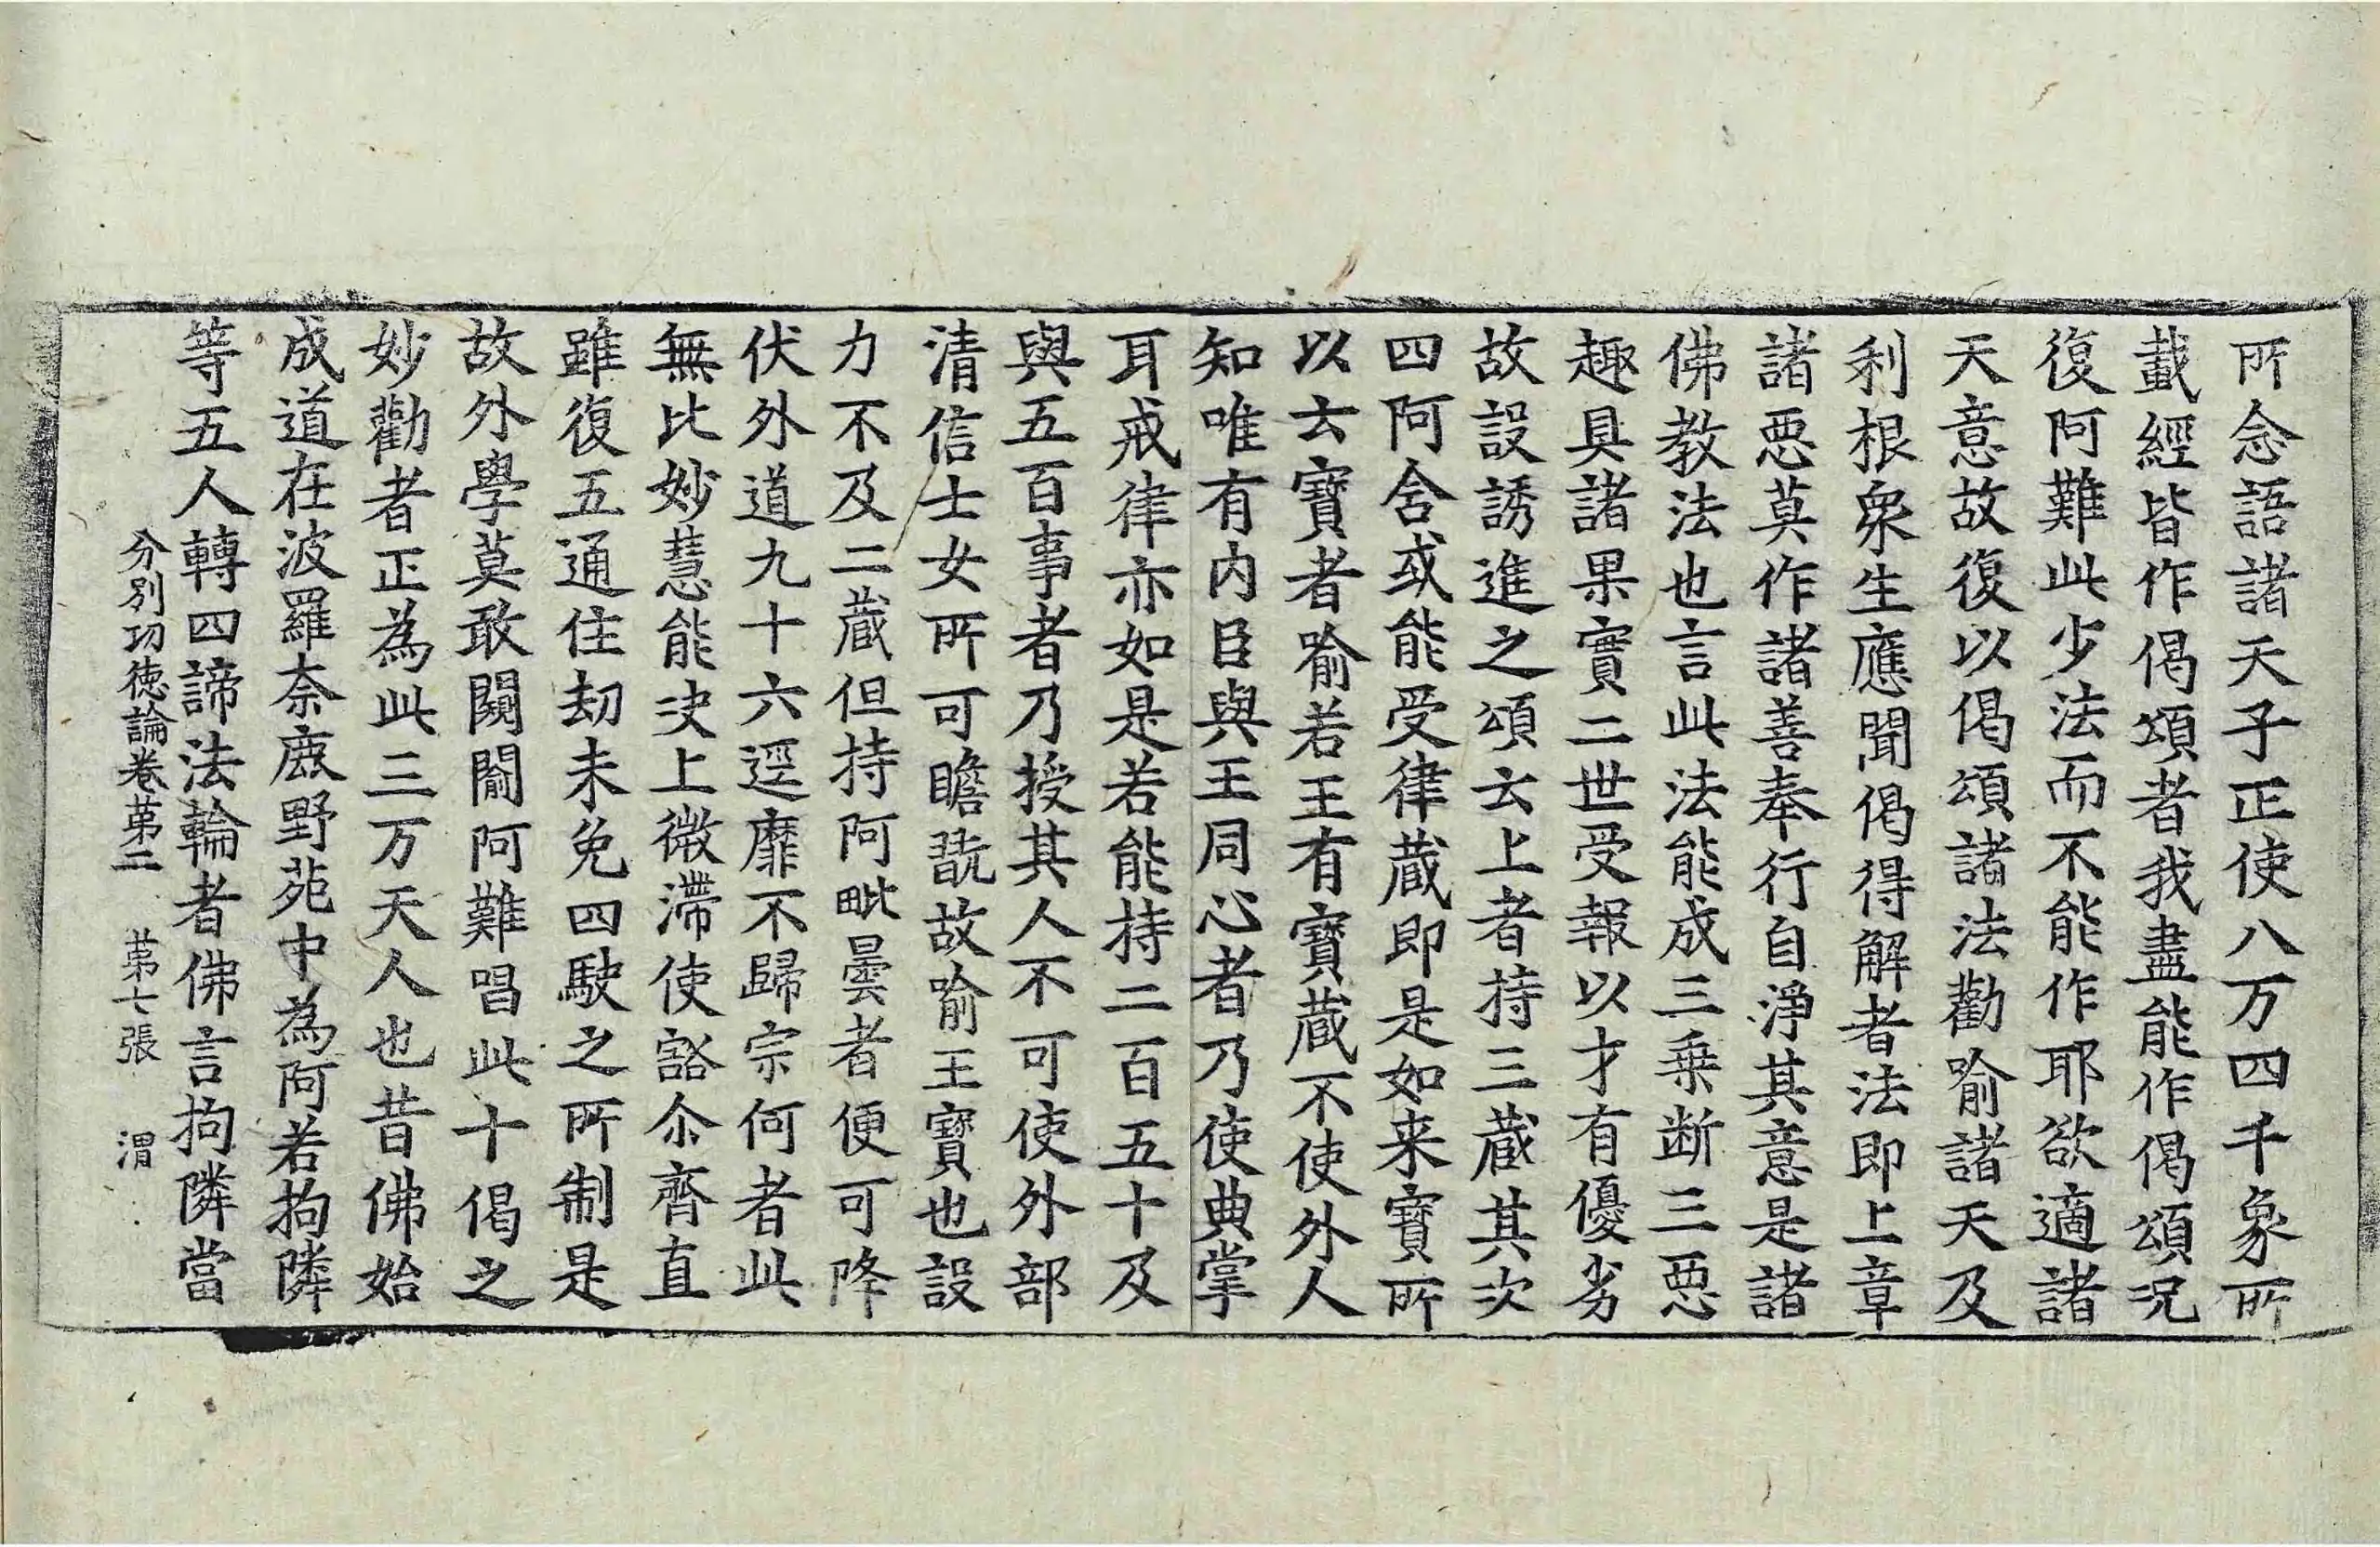 所念語諸天子正使八万四千象所
載經皆作偈頌者我盡能作偈頌況
復阿難此少法而不能作耶欲適諸
天意故復以偈頌諸法勸喻諸天及
利根衆生應聞偈得解者法即上章
諸惡莫作諸善奉行自淨其意是諸
佛教法也言此法能成三乗断三惡
趣具諸果實二世受報以才有優劣
故設誘進之頌云上者持三蔵其次
四阿含或能受律蔵即是如来寶所
以云寶者喻若王有寶蔵不使外人
知唯有内臣與王同心者乃使典掌
耳戒律亦如是若能持二百五十及
與五百事者乃授其人不可使外部
清信士女所可瞻翫故喻王寶也設
力不及二蔵但持阿毗曇者便可降
伏外道九十六逕靡不歸宗何者此
無比妙慧能決上微滯使豁尒齊直
雖復五通住劫未免四駛之所制是
故外學莫敢闚閻阿難唱此十偈之
妙勸者正為此三万天人也昔佛始
成道在波羅奈鹿野苑中為阿若拘隣
等五人轉四諦法輪者佛言拘隣當
分別功徳論卷苐二 苐七張 渭